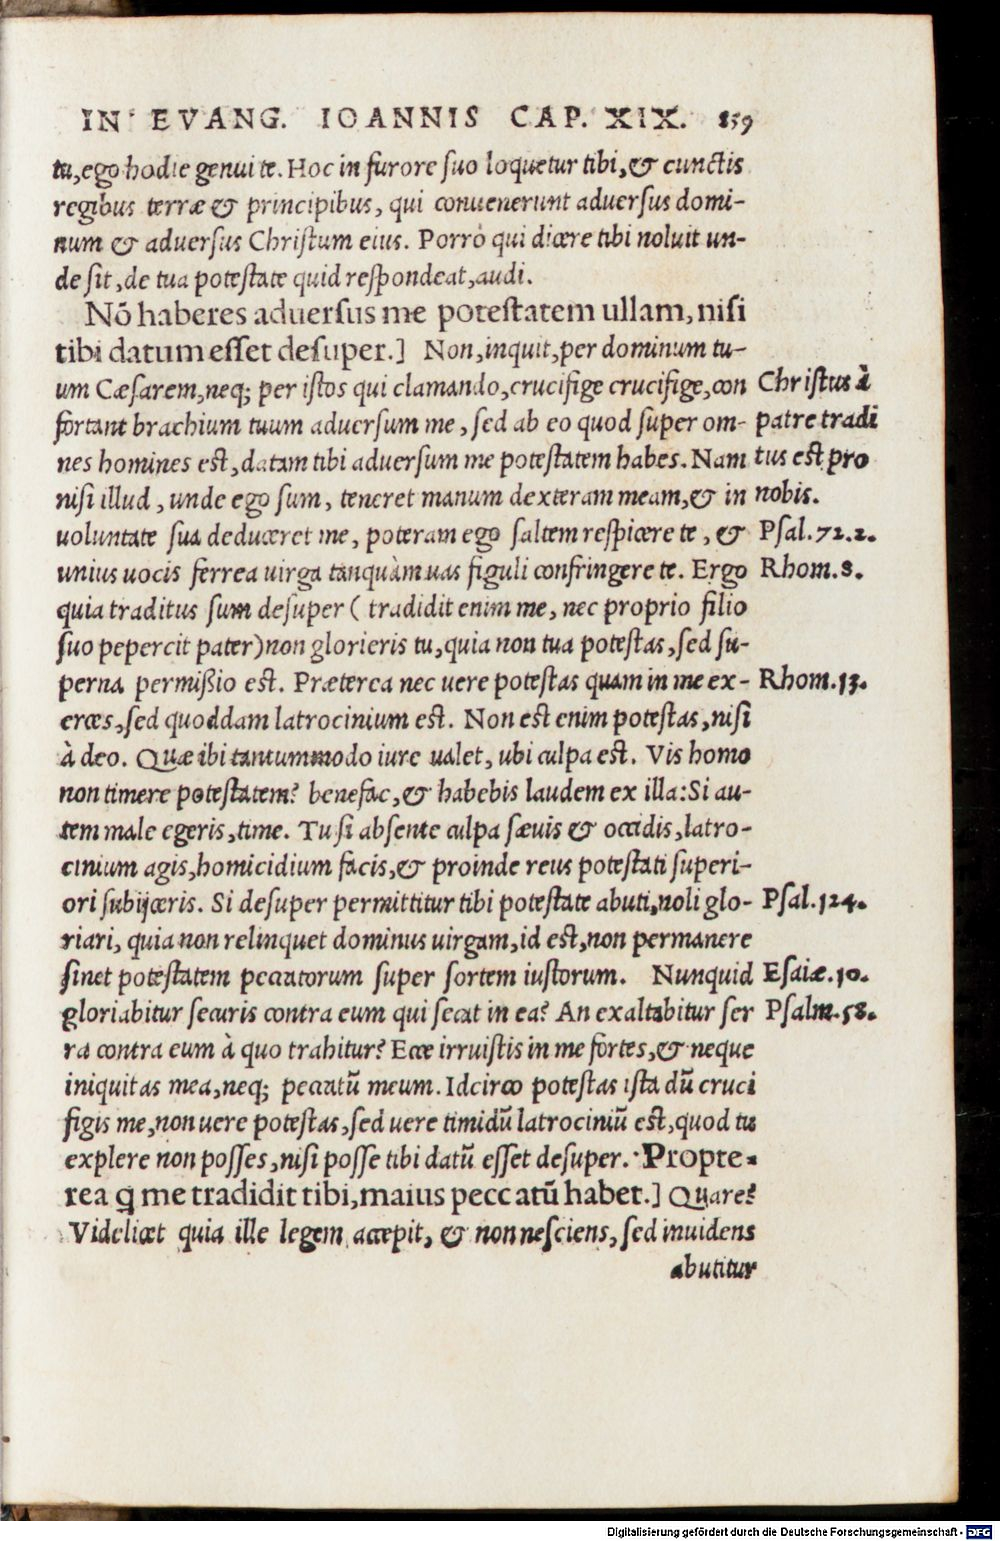 IN EVANG. IOANNIS CAP. XIX. 859
tu, ego hodie genui te. Hoc in furore suo loquetur tibi, & cunctis
regibus terræ & principibus, qui conuenerunt aduersus domi-
num & aduersus Christum eius. Porrò qui dicere tibi noluit un-
de sit, de tua potestate quid respondeat, audi.
Nō haberes aduersus me potestatem ullam, nisi
tibi datum esset desuper.] Non, inquit, per dominum tu-
um Cæsarem, neq; per istos qui clamando, crucifige crucifige, con
fortant brachium tuum aduersum me, sed ab eo quod super om-
nes homines est, datam tibi aduersum me potestatem habes. Nam
nisi illud, unde ego sum, teneret manum dexteram meam, & in
uoluntate sua deduceret me, poteram ego saltem respicere te, &
unius uocis ferrea uirga tanquàm uas figuli confringere te. Ergo
quia traditus sum desuper ( tradidit enim me, nec proprio filio
suo pepercit pater) non glorieris tu, quia non tua potestas, sed su-
perna permißio est. Præterea nec uere potestas quam in me ex-
erces, sed quoddam latrocinium est. Non est enim potestas, nisi
à deo. Quæ ibi tantummodo iure ualet, ubi culpa est. Vis homo
non timere potestatem? benefac, & habebis laudem ex illa: Si au-
tem male egeris, time. Tu si absente culpa sæuis & occidis, latro-
cinium agis, homicidium facis, & proinde reus potestati superi-
ori subijceris. Si desuper permittitur tibi potestate abuti, noli glo-
riari, quia non relinquet dominus uirgam, id est, non permanere
sinet potestatem peccatorum super sortem iustorum. Nunquid
gloriabitur securis contra eum qui secat in ea? An exaltabitur ser
ra contra eum à quo trahitur? Ecce irruistis in me fortes, & neque
iniquitas mea, neq; peccatū meum. Idcirco potestas ista dū cruci
figis me, non uere potestas, sed uere timidū latrociniū est, quod tu
explere non posses, nisi posse tibi datū esset desuper. Propte-
rea q me tradidit tibi, maius peccatū habet.] Quare?
Videlicet quia ille legem accepit, & non nesciens, sed inuidens
abutitur
Christus à
patre tradi
tus est pro
nobis.
Psal. 72. 2.
Rhom. 8.
Rhom. 13.
Psal. 124.
Esaiæ. 10.
Psalm. 58.
Digitalisierung gefördert durch die Deutsche Forschungsgemeinschaft - DFG